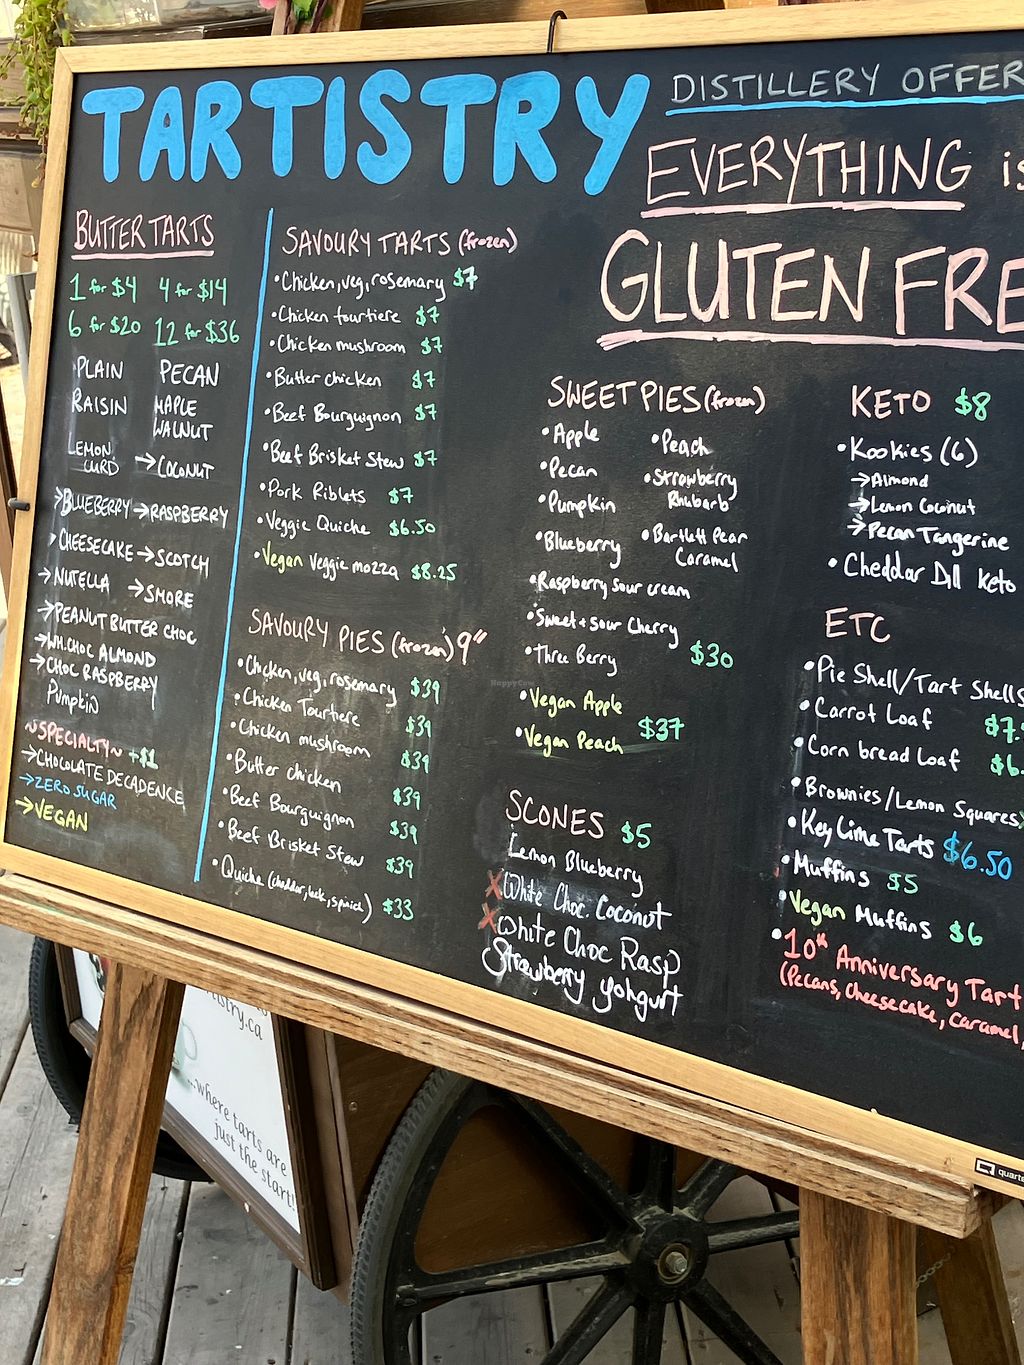 TARTISTRY
DISTILLERY OFFER
EVERYTHING is
GLUTEN FRE
BUTTER TARTS
1 for $4 4 for $14
6 for $20 12 for $36
PLAIN PECAN
RAISIN MAPLE
WALNUT
LEMON
CURD →COCONUT
→BLUEBERRY →RASPBERRY
→CHEESECAKE →SCOTCH
→NUTELLA →SMORE
→PEANUT BUTTER CHOC
→WH.CHOC ALMOND
→CHOC RASPBERRY
Pumpkin
~SPECIALTY~ +$1
→CHOCOLATE DECADENCE
→ZERO SUGAR
→VEGAN
SAVOURY TARTS (frozen)
•Chicken, veg, rosemary $7
•Chicken tourtiere $7
•Chicken mushroom $7
•Butter chicken $7
•Beef Bourguignon $7
•Beef Brisket Stew $7
•Pork Riblets $7
•Veggie Quiche $6.50
•Vegan Veggie mozza $8.25
SAVOURY PIES (frozen) 9"
•Chicken, veg, rosemary $39
•Chicken Tourtiere $39
•Chicken mushroom $39
•Butter chicken $39
•Beef Bourguignon $39
•Beef Brisket Stew $39
•Quiche (cheddar, leek, spinich) $33
SWEET PIES (frozen)
•Apple •Peach
•Pecan •Strawberry
Rhubarb
•Pumpkin
•Blueberry •Bartlett Pear
Caramel
•Raspberry sour cream
•Sweet + Sour Cherry
•Three Berry $30
•Vegan Apple
•Vegan Peach $37
SCONES $5
Lemon Blueberry
X White Choc. Coconut
X White Choc Rasp
Strawberry yohgurt
KETO $8
•Kookies (6)
→Almond
→Lemon Coconut
→Pecan Tangerine
•Cheddar Dill Keto
ETC
•Pie Shell/Tart Shells
•Carrot Loaf $7.
•Corn bread Loaf $6.
•Brownies/Lemon Squares
•Key Lime Tarts $6.50
•Muffins $5
•Vegan Muffins $6
•10th Anniversary Tart
(Pecans, cheesecake, caramel,
HappyCow
tistry.ca
...where tarts are
just the start!
quarte